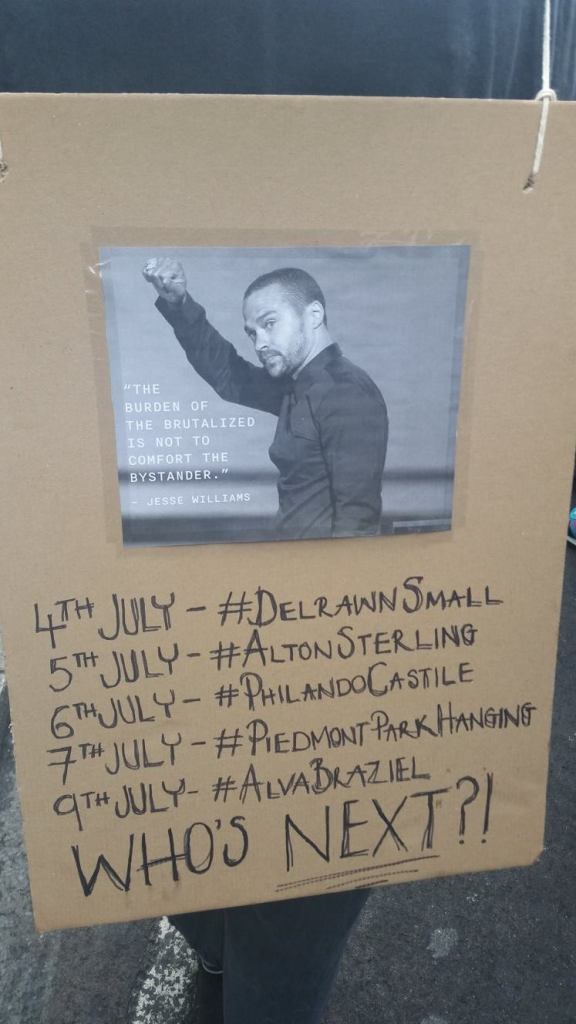 "THE
BURDEN OF
THE BRUTALIZED
IS NOT TO
COMFORT THE
BYSTANDER."
- JESSE WILLIAMS
4TH JULY - #DELRAWNSMALL
5TH JULY - #ALTONSTERLING
6TH JULY - #PHILANDOCASTILE
7TH JULY - #PIEDMONTPARKHANGING
9TH JULY - #ALVABRAZIEL
WHO'S NEXT?!